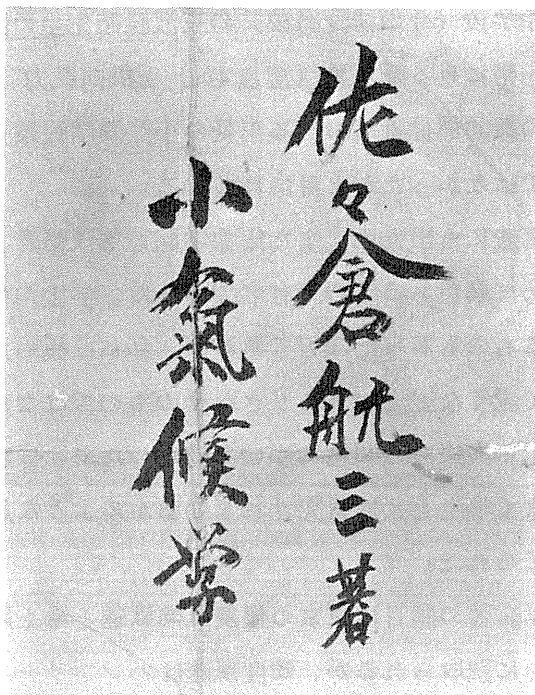 佐々倉航三著
小氣候学